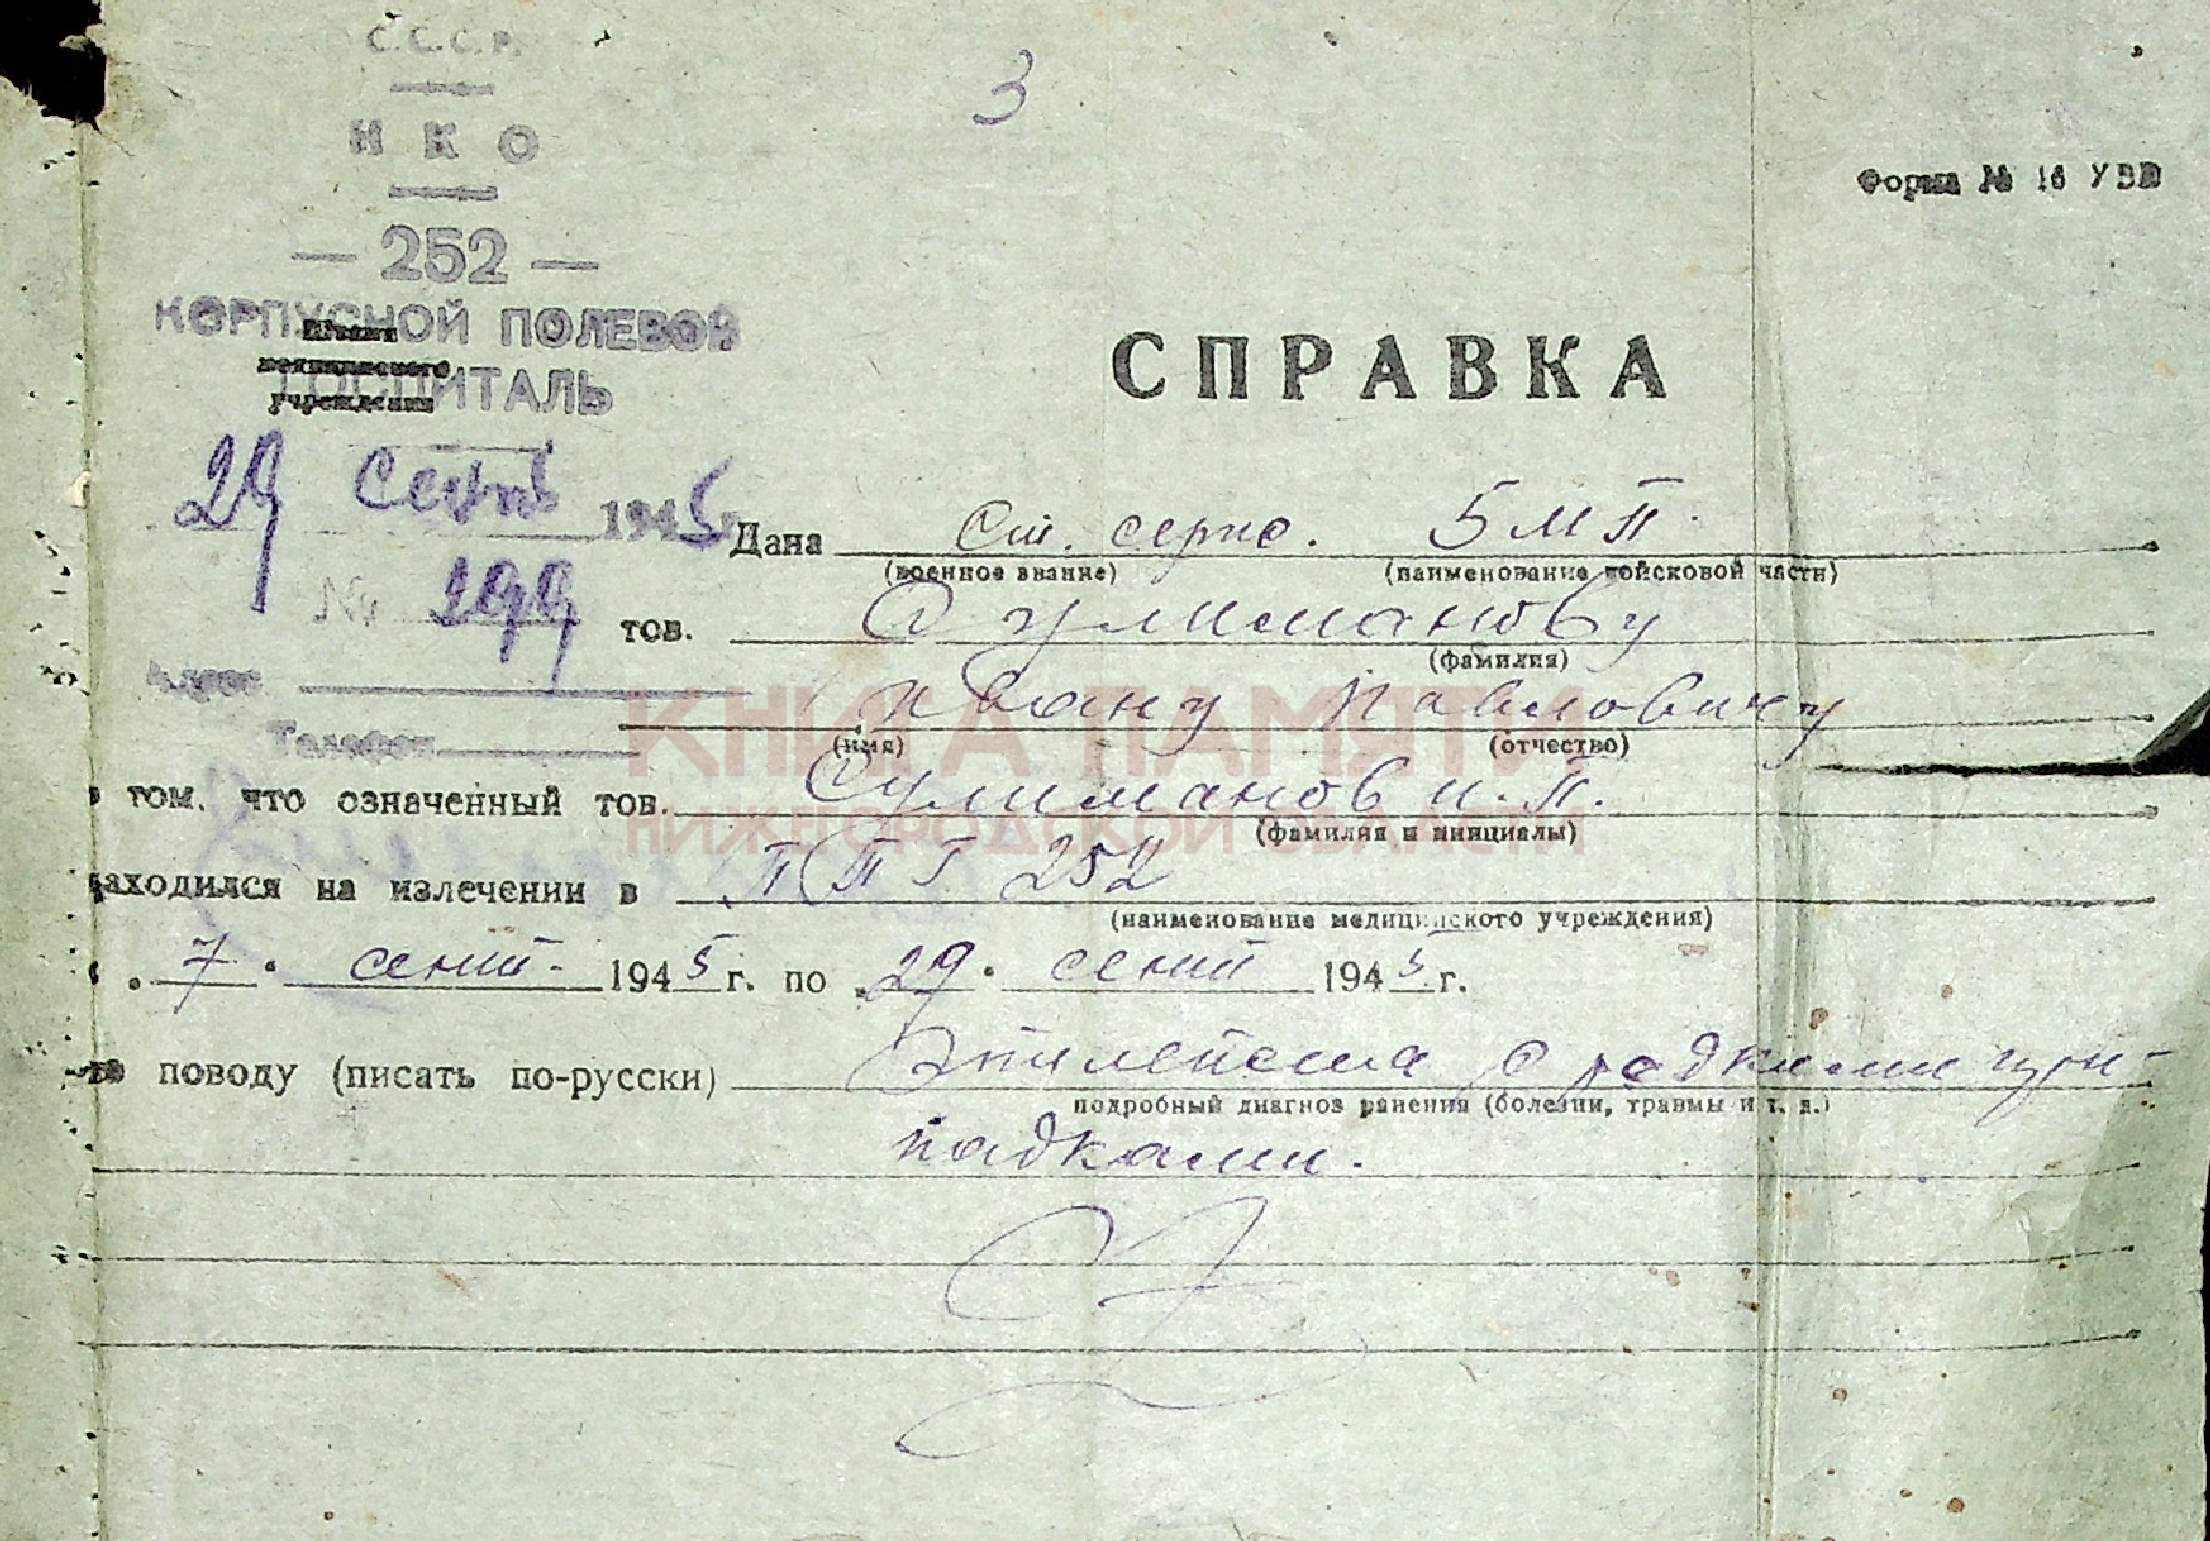 С.С.С.Р.
3
Н К О
Форма № 16 УВВ
— 252 —
КОРПУСНОЙ ПОЛЕВОЙ
Штамп
медицинского
ГОСПИТАЛЬ
учреждения
СПРАВКА
29 сент 1945
Дана Ст. серж. 5 МП.
(военное звание) (наименование войсковой части)
№ 299
тов. Сулиманову
(фамилия)
Адрес
Ивану Павловичу
(имя) (отчество)
Телефон
КНИГА ПАМЯТИ
НИЖЕГОРОДСКОЙ ОБЛАСТИ
в том, что означенный тов. Сулиманов И.П.
(фамилия и инициалы)
находился на излечении в ППГ 252
(наименование медицинского учреждения)
с „7" сент. 1945 г. по „29" сент 1945 г.
по поводу (писать по-русски) Эпилепсия с редкими при-
подробный диагноз ранения (болезни, травмы и т. д.)
падками.